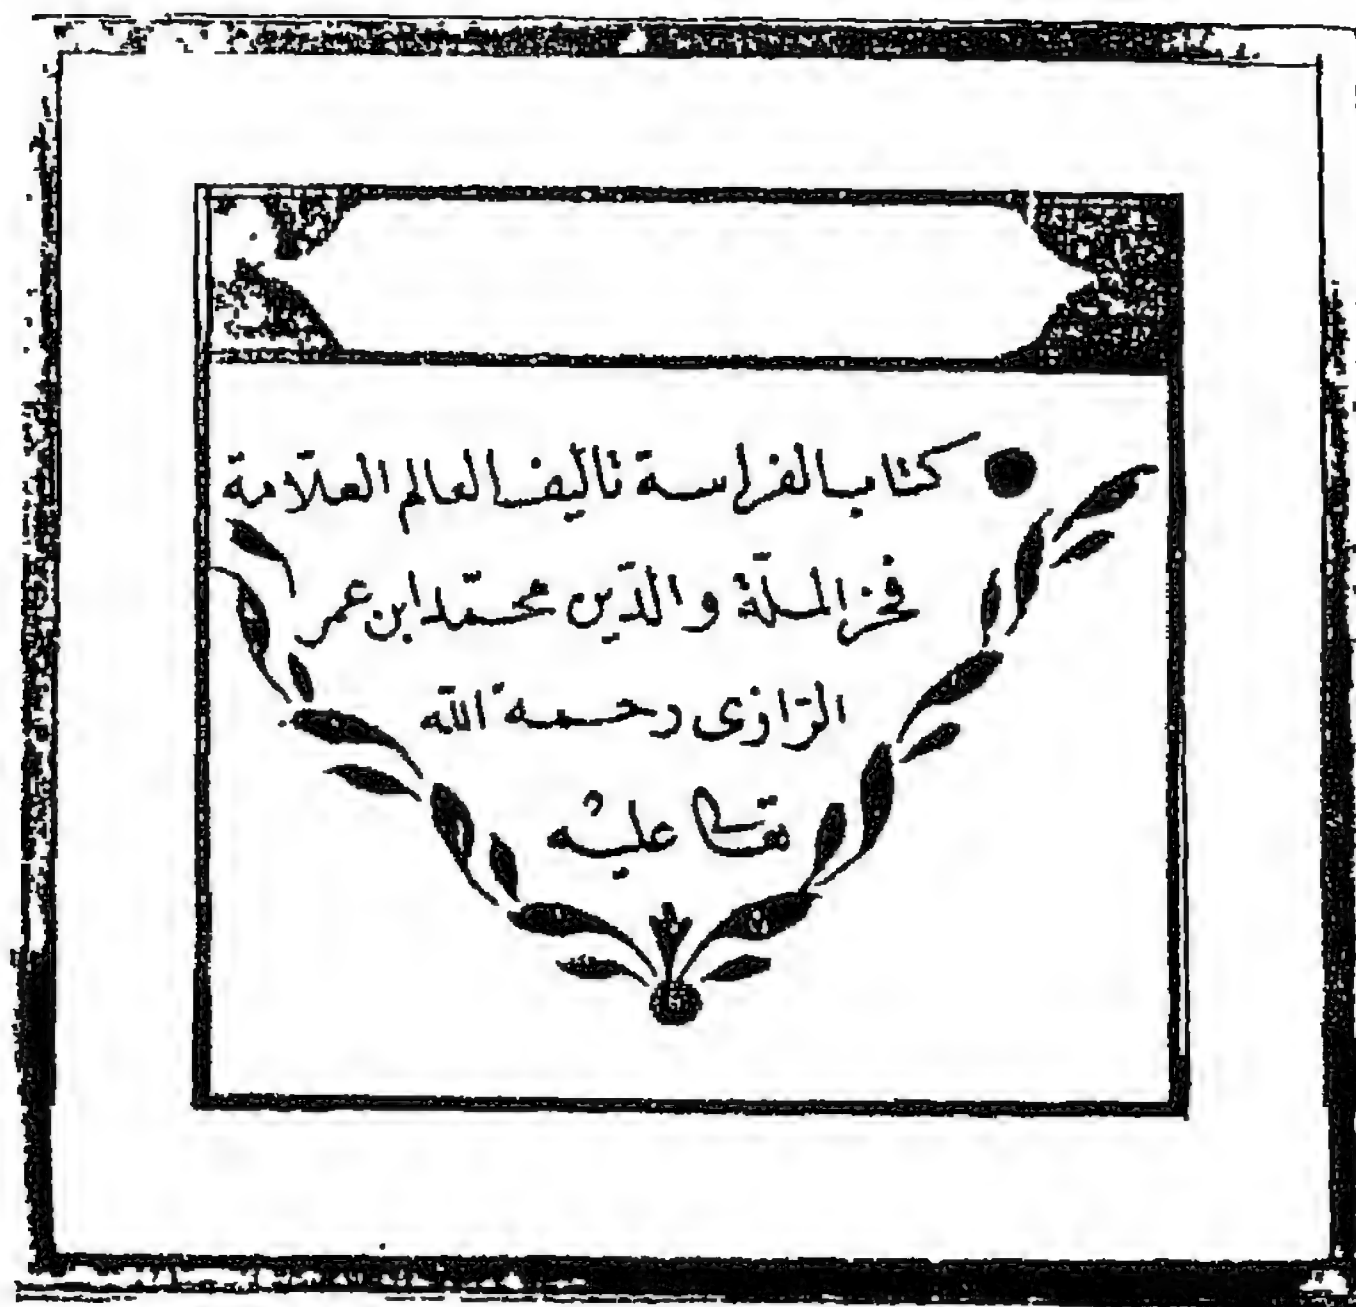 كتاب الفراسة تاليف العالم العلّامة
فخر الملّة والدّين محمّد ابن عمر
الرّازى رحمة اللّه
تعالى عليه